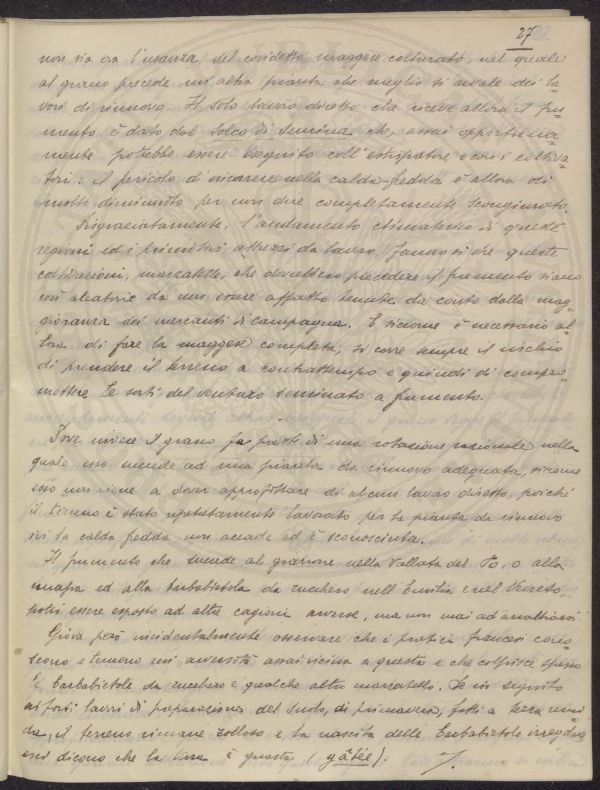 27
non sia ora l'usanza del cosidetto maggese colturato, nel quale
al grano precede un'altra pianta che meglio si avvale dei la-
vori di rinnovo. Il solo lavoro diretto che riceve allora il fru-
mento è dato dal solco di semina, che, assai opportuna-
mente potrebbe essere eseguito coll'estirpatore o coi coltiva-
tori: il pericolo di incorrere nella calda-fredda è allora di
molto diminuito per non dire completamente scongiurato.
Disgraziatamente, l'andamento climaterico di queste
regioni ed i primitivi attrezzi da lavoro, fanno sì che queste
coltivazioni, marzatelle, che dovrebbero precedere il frumento siano
così aleatorie da non essere affatto tenute da conto dalla mag-
gioranza dei mercanti di campagna. E siccome è necessario al-
lora di fare la maggese completa, si corre sempre il rischio
di prendere il terreno a contrattempo e quindi di compro-
mettere le sorti del venturo seminato a frumento.
Dove invece il grano fa parti di una rotazione razionale nella
quale esso succede ad una pianta da rinnovo adeguata, siccome
esso non viene a dover approfittare di alcun lavoro diretto, poichè
il terreno è stato ripetutamente lavorato per la pianta da rinnovo
ivi la calda fredda non accade ed è sconosciuta.
Il frumento che succede al granone nella Vallata del Po, o alla
canapa ed alla barbabietola da zucchero nell'Emilia e nel Veneto,
potrà essere esposto ad altre cagioni avverse, ma non mai ad arrabbiarsi.
Giova però incidentalmente osservare che i pratici francesi cono-
scono e temono un'avversità assai vicina a questa e che colpisce spesso
le barbabietole da zucchero e qualche altra marzatella. Se in seguito
ai forti lavori di preparazione del suolo, di primavera, fatti a terra umi-
da, il terreno rimane zolloso e la nascita delle barbabietole irregolare
essi dicono che la terra è guasta (gâtée).